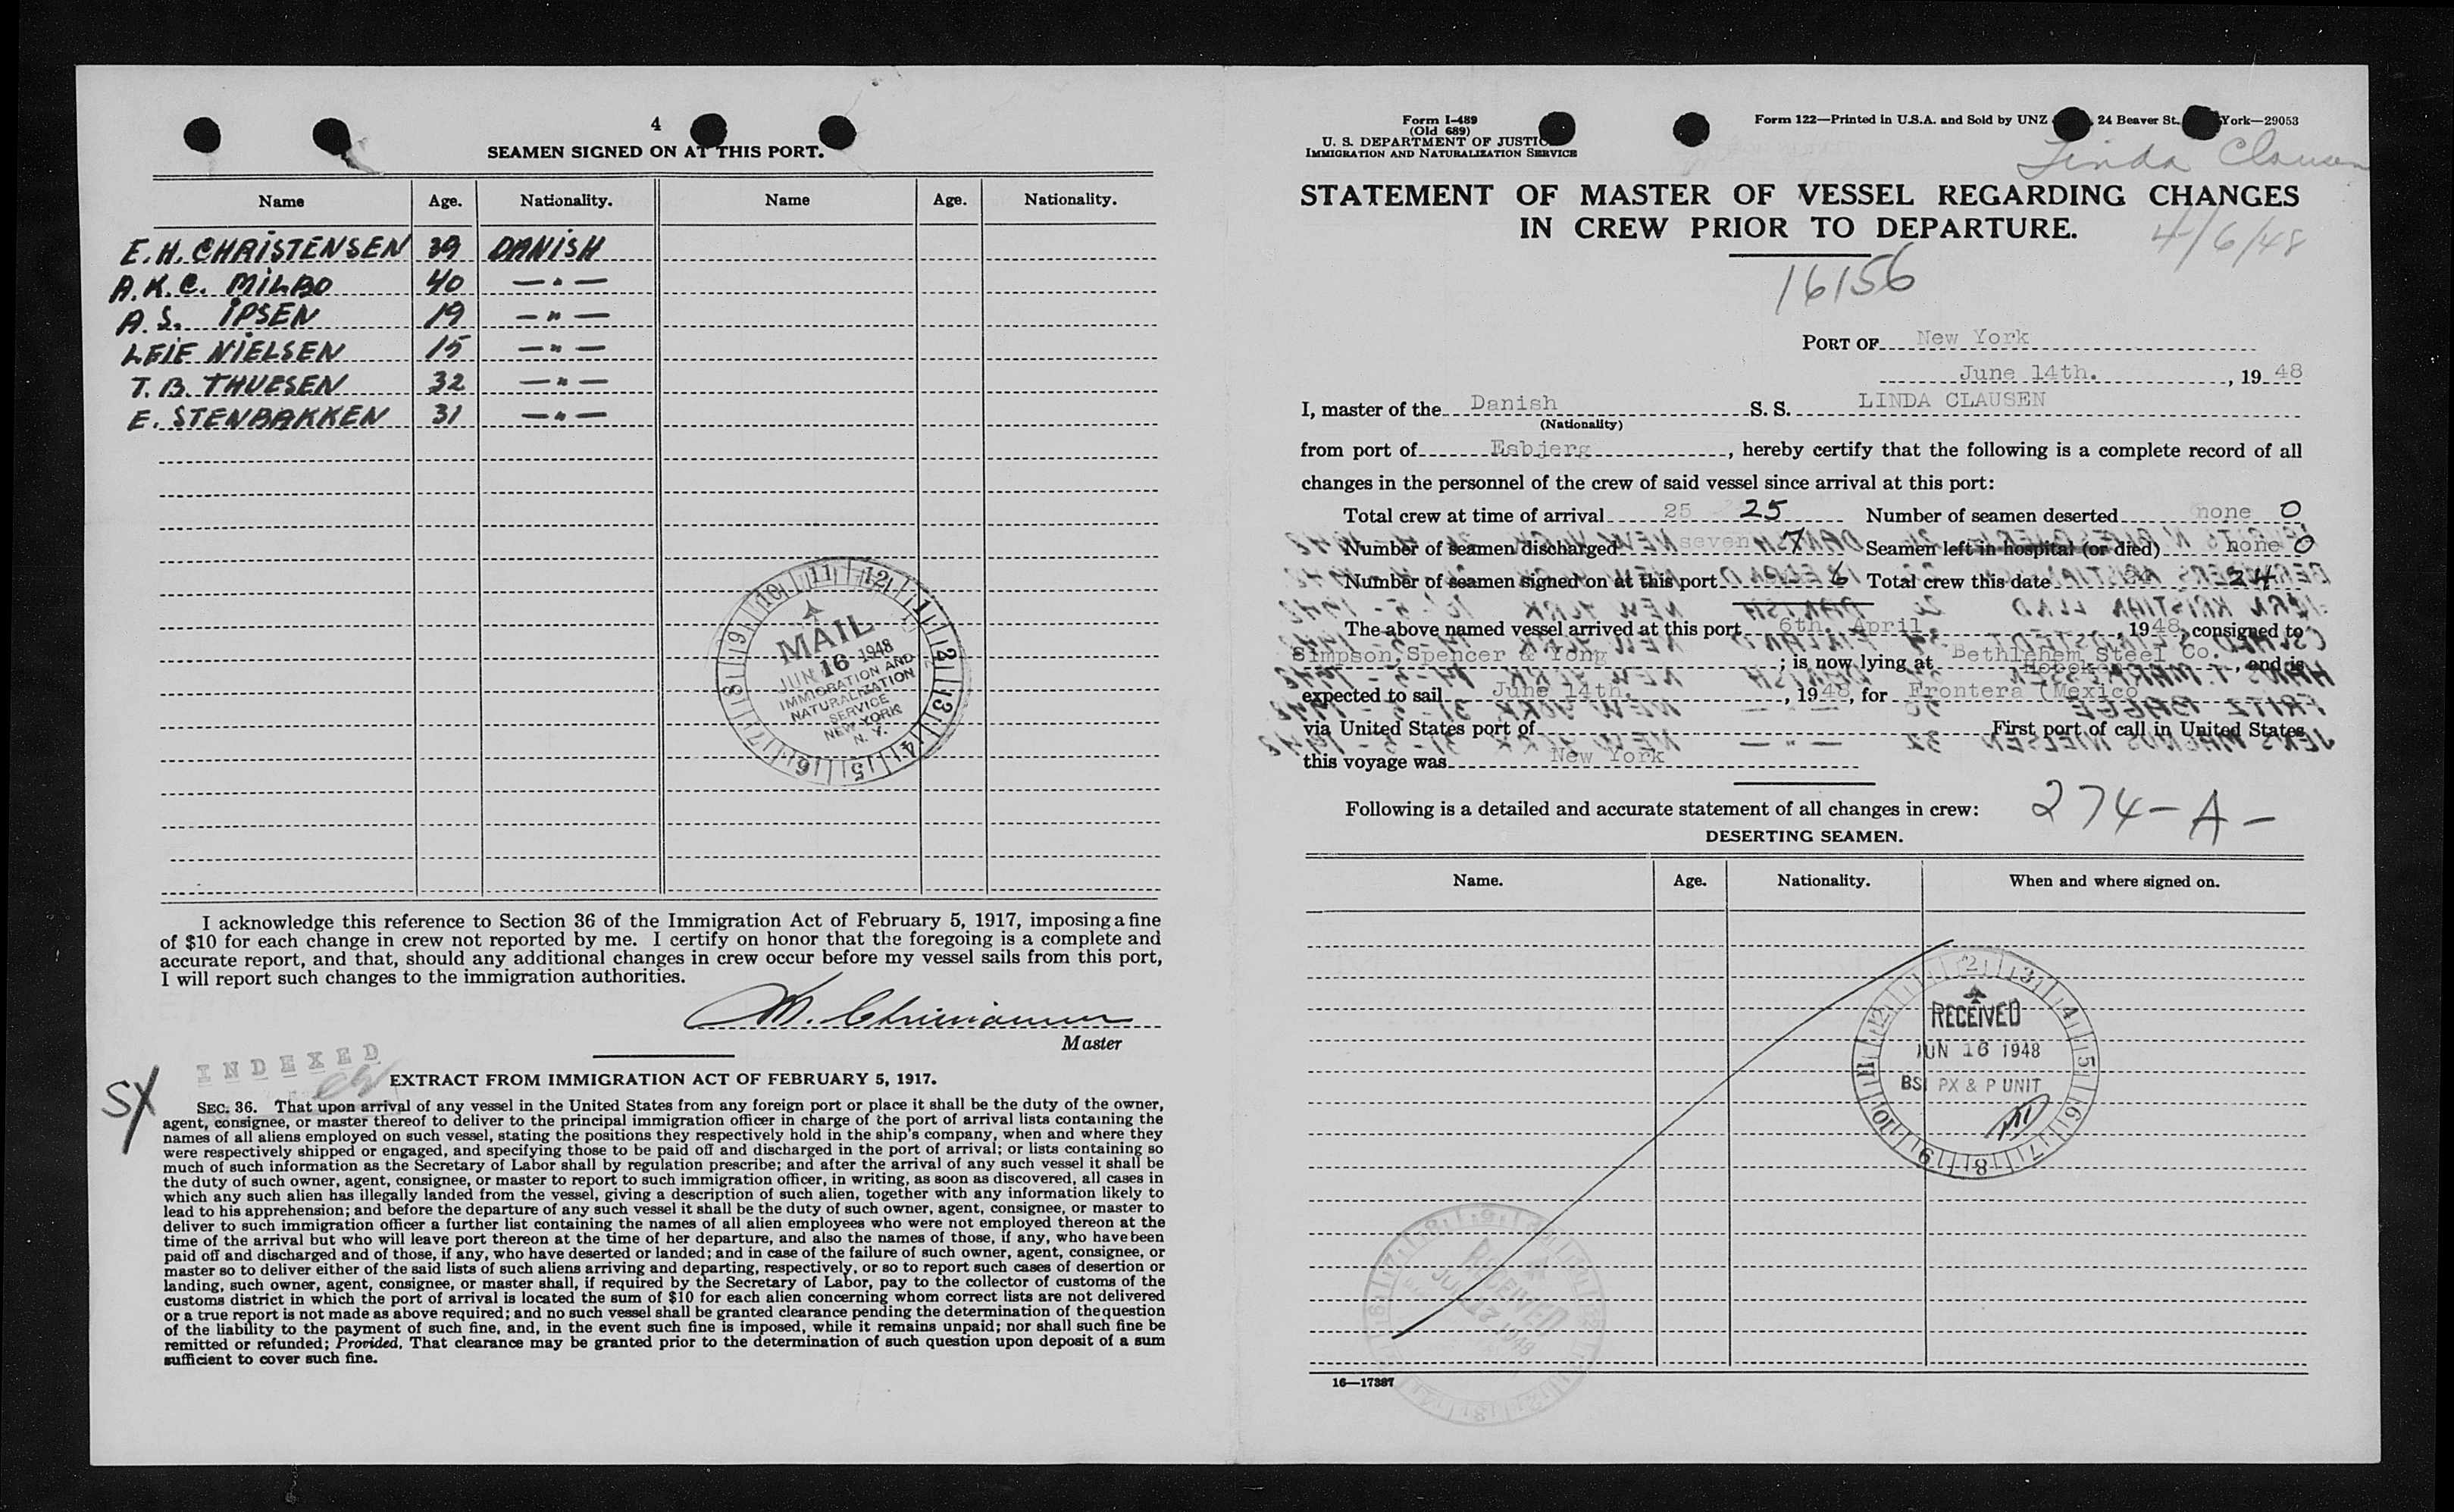 4
SEAMEN SIGNED ON AT THIS PORT.
Name Age. Nationality. Name Age. Nationality.
E. H. CHRISTENSEN 39 DANISH
A. K. C. MILBO 40 — " —
A. S. IPSEN 19 — " —
LEIF NIELSEN 15 — " —
T. B. THUESEN 32 — " —
E. STENBAKKEN 31 — " —
MAIL
JUN 16 1948
IMMIGRATION AND
NATURALIZATION
SERVICE
NEW YORK
N. Y.
I acknowledge this reference to Section 36 of the Immigration Act of February 5, 1917, imposing a fine
of $10 for each change in crew not reported by me. I certify on honor that the foregoing is a complete and
accurate report, and that, should any additional changes in crew occur before my vessel sails from this port,
I will report such changes to the immigration authorities.
Master
INDEXED
SX
EXTRACT FROM IMMIGRATION ACT OF FEBRUARY 5, 1917.
SEC. 36. That upon arrival of any vessel in the United States from any foreign port or place it shall be the duty of the owner,
agent, consignee, or master thereof to deliver to the principal immigration officer in charge of the port of arrival lists containing the
names of all aliens employed on such vessel, stating the positions they respectively hold in the ship's company, when and where they
were respectively shipped or engaged, and specifying those to be paid off and discharged in the port of arrival; or lists containing so
much of such information as the Secretary of Labor shall by regulation prescribe; and after the arrival of any such vessel it shall be
the duty of such owner, agent, consignee, or master to report to such immigration officer, in writing, as soon as discovered, all cases in
which any such alien has illegally landed from the vessel, giving a description of such alien, together with any information likely to
lead to his apprehension; and before the departure of any such vessel it shall be the duty of such owner, agent, consignee, or master to
deliver to such immigration officer a further list containing the names of all alien employees who were not employed thereon at the
time of the arrival but who will leave port thereon at the time of her departure, and also the names of those, if any, who have been
paid off and discharged and of those, if any, who have deserted or landed; and in case of the failure of such owner, agent, consignee, or
master so to deliver either of the said lists of such aliens arriving and departing, respectively, or so to report such cases of desertion or
landing, such owner, agent, consignee, or master shall, if required by the Secretary of Labor, pay to the collector of customs of the
customs district in which the port of arrival is located the sum of $10 for each alien concerning whom correct lists are not delivered
or a true report is not made as above required; and no such vessel shall be granted clearance pending the determination of the question
of the liability to the payment of such fine, and, in the event such fine is imposed, while it remains unpaid; nor shall such fine be
remitted or refunded; Provided, That clearance may be granted prior to the determination of such question upon deposit of a sum
sufficient to cover such fine.
Form I-489
(Old 689)
U. S. DEPARTMENT OF JUSTICE
IMMIGRATION AND NATURALIZATION SERVICE
Form 122—Printed in U.S.A. and Sold by UNZ 24 Beaver St. York—29053
Linda Clausen
STATEMENT OF MASTER OF VESSEL REGARDING CHANGES
IN CREW PRIOR TO DEPARTURE.
4/6/48
16156
PORT OF New York
June 14th. , 19 48
I, master of the Danish S. S. LINDA CLAUSEN
(Nationality)
from port of Esbjerg , hereby certify that the following is a complete record of all
changes in the personnel of the crew of said vessel since arrival at this port:
Total crew at time of arrival 25 25 Number of seamen deserted none 0
Number of seamen discharged seven 7 Seamen left in hospital (or died) none 0
Number of seamen signed on at this port 6 Total crew this date 24
The above named vessel arrived at this port 6th. April 1948, consigned to
Simpson, Spencer & Yong ; is now lying at Bethlehem Steel Co.
Hoboken , and is
expected to sail June 14th. , 1948, for Frontera (Mexico
via United States port of First port of call in United States
this voyage was New York
Following is a detailed and accurate statement of all changes in crew:
274-A-
DESERTING SEAMEN.
Name. Age. Nationality. When and where signed on.
RECEIVED
JUN 16 1948
BSI PX & P UNIT
RECEIVED
JUN 17 1948
16—17387